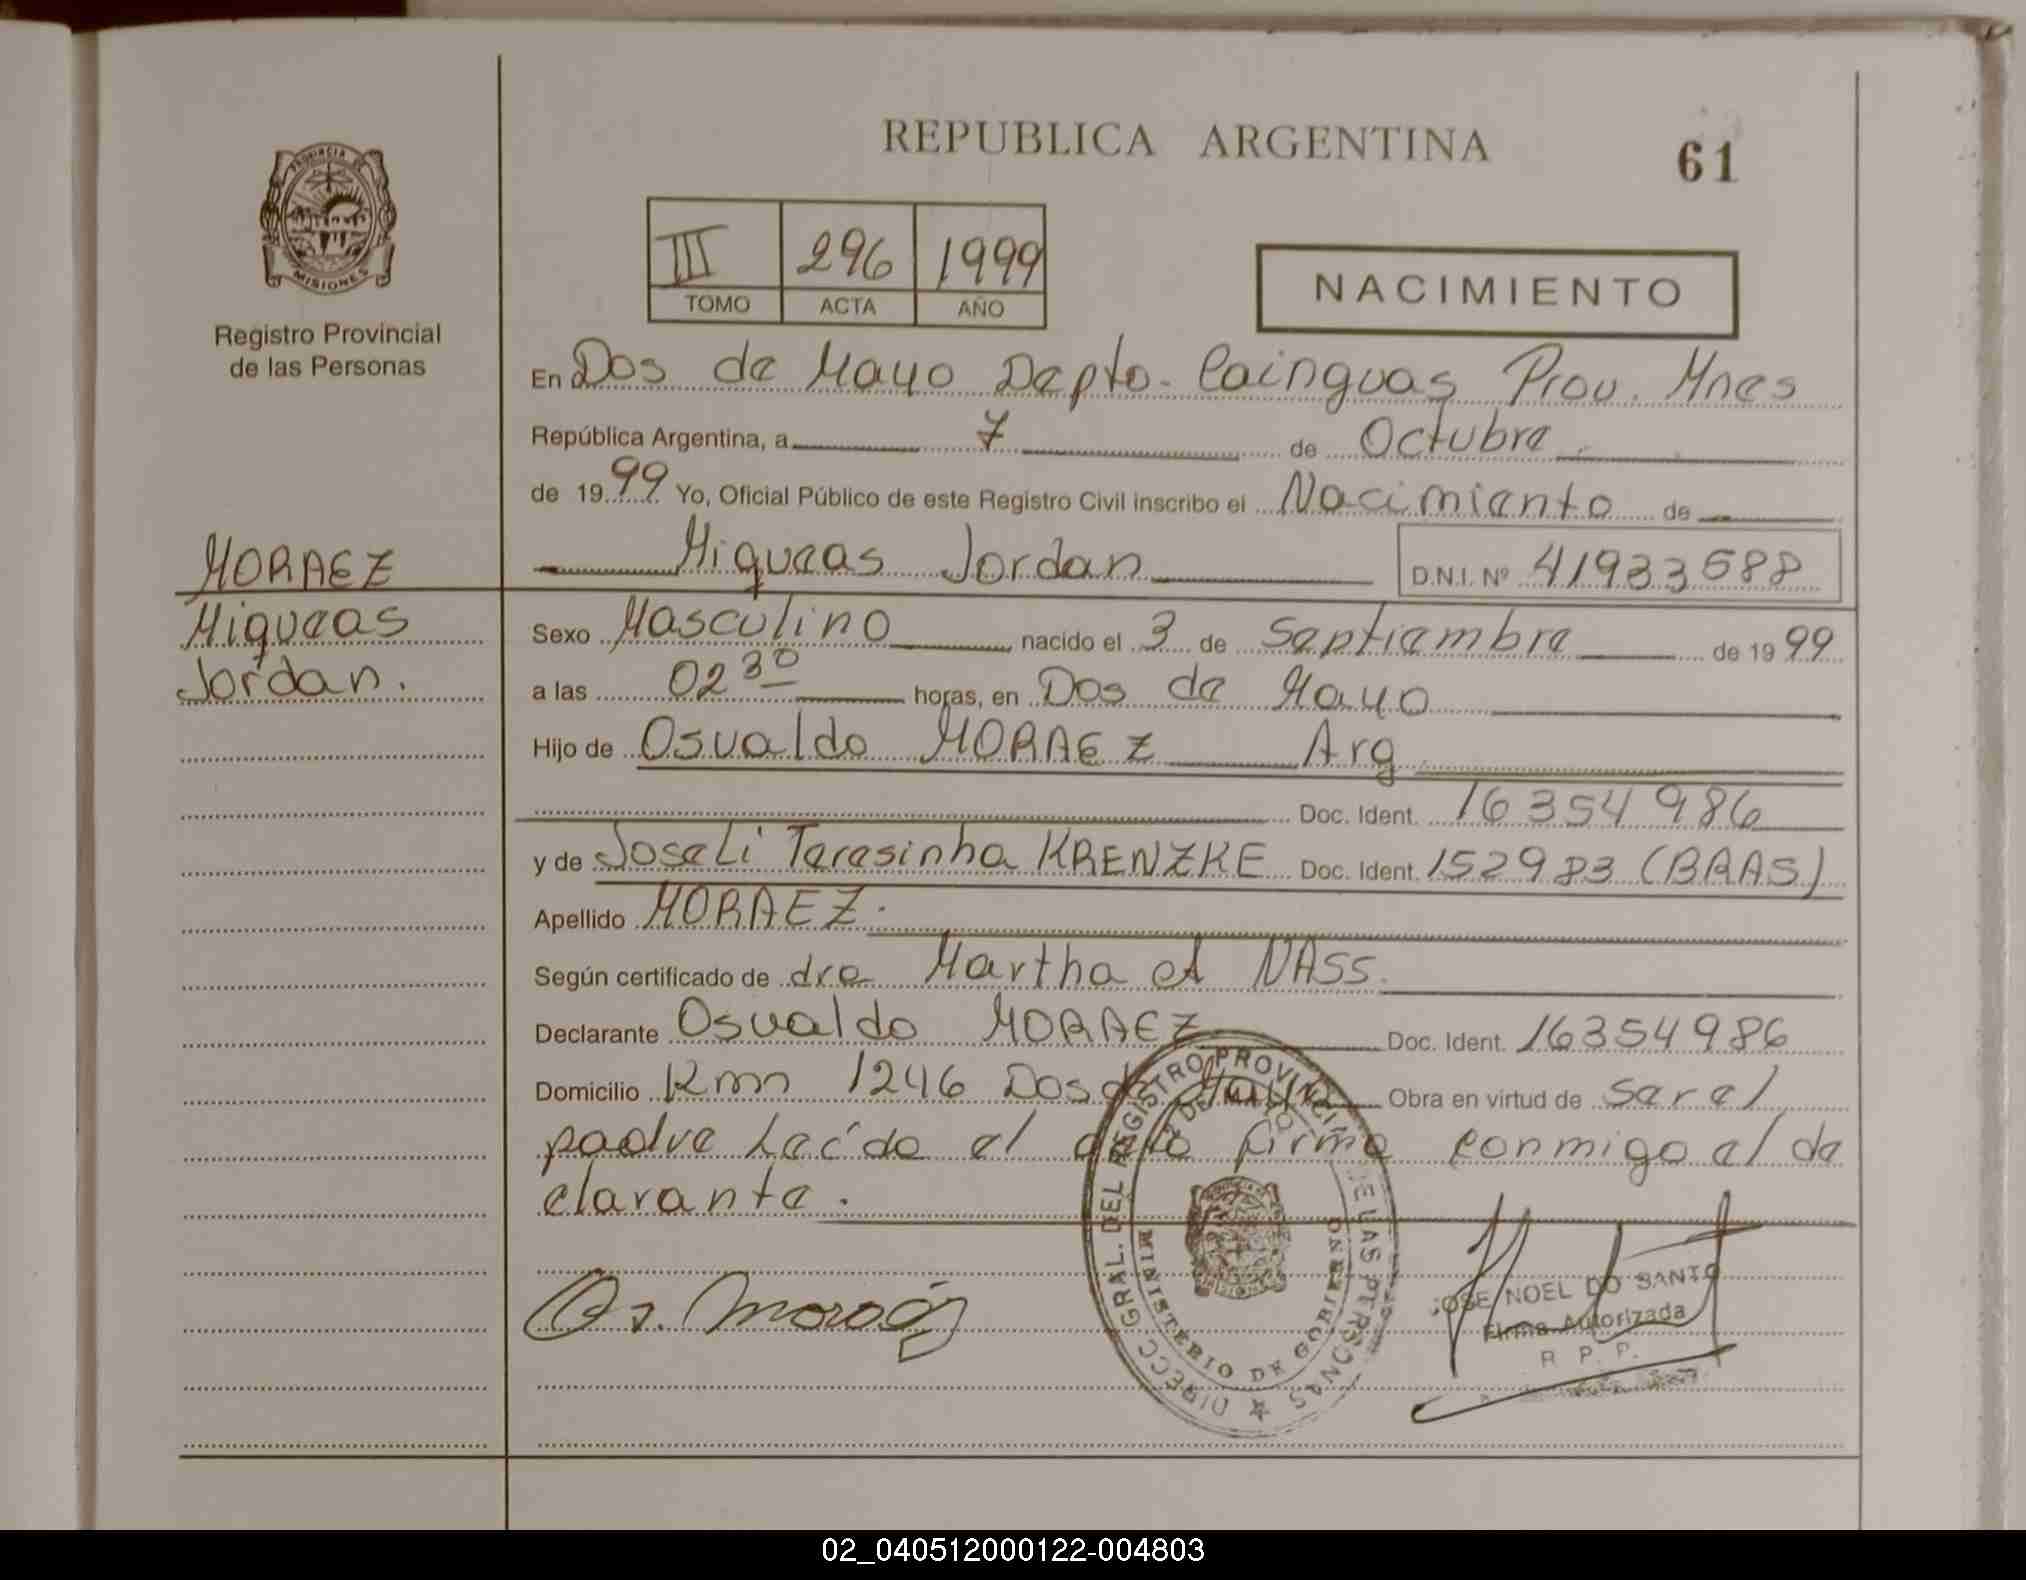 REPUBLICA ARGENTINA
61
PROVINCIA DE
MISIONES
Registro Provincial
de las Personas
III 296 1999
TOMO ACTA AÑO
NACIMIENTO
En Dos de Mayo Depto. Cainguas Prov. Mnes
República Argentina, a 7 de Octubre
de 1999 Yo, Oficial Público de este Registro Civil inscribo el Nacimiento de
Miqueas Jordan D.N.I. Nº 41933588
MORAEZ
Miqueas
Jordan.
Sexo Masculino nacido el 3 de Septiembre de 1999
a las 02 30 horas, en Dos de Mayo
Hijo de Osvaldo MORAEZ Arg
Doc. Ident. 16354986
y de Joseli Teresinha KRENZKE Doc. Ident. 152983 (BRAS)
Apellido MORAEZ.
Según certificado de dra Martha et NASS.
Declarante Osvaldo MORAEZ Doc. Ident. 16354986
Domicilio Km 1246 Dos de Mayo Obra en virtud de ser el
padre Leído el acta firma conmigo el de
clarante.
Os. Moraez
DIRECC GRAL. DEL REGISTRO PROVINCIAL DE LAS PERSONAS
2 DE MAYO
MINISTERIO DE GOBIERNO
JOSE NOEL DO SANTO
Firma Autorizada
R. P. P.
02_040512000122-004803